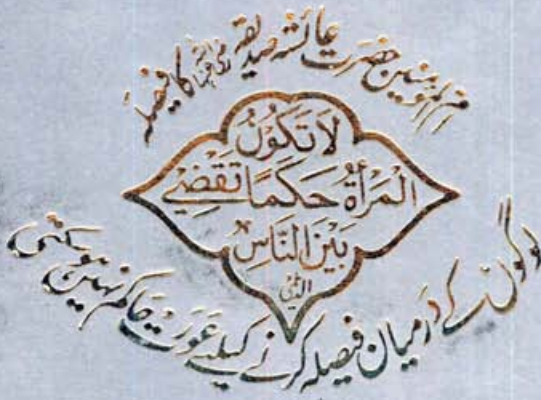 ام المومنین حضرت عائشہ صدیقہ رضی اللہ عنہا کا فیصلہ
لَا تَكُوْنُ
الْمَرْأَةُ حَكَمًا تَقْضِيْ
بَيْنَ النَّاسِ
لوگوں کے درمیان فیصلہ کرنے کیلئے عورت حاکم نہیں ہو سکتی